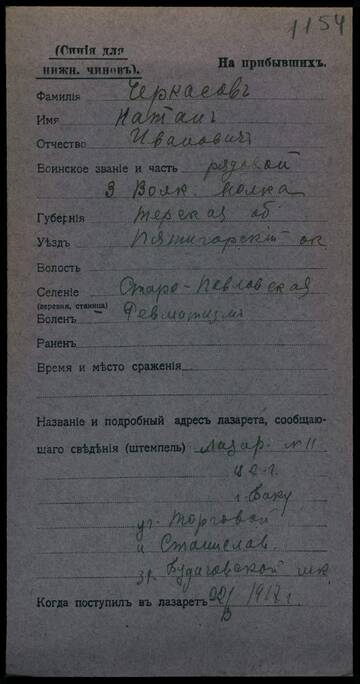 1154
(Синія для
нижн. чиновъ).
На прибывшихъ.
Фамилія Черкасовъ
Имя Натанъ
Отчество Ивановичъ
Воинское званіе и часть рядовой
3 Волк. полка
Губернія Терская об
Уѣздъ Пятигорскій ок
Волость
Селеніе Старо-Павловская
(деревня, станица)
Боленъ Ревматизмъ
Раненъ
Время и мѣсто сраженія
Названіе и подробный адресъ лазарета, сообщаю-
щаго свѣдѣнія (штемпель) Лазар. N 11
г. Баку
уг. Торговой
и Станислав.
зд. Будаговской шк
Когда поступилъ въ лазаретъ 22/ 1917 г.